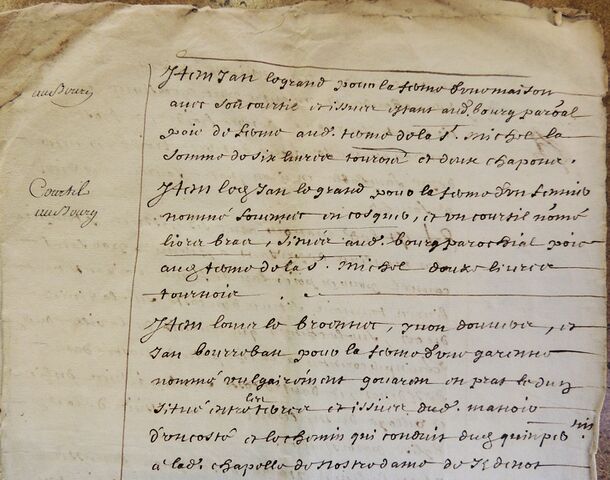 au Bourg
Item Jan legrand pour la ferme d'une maison
avec son courtil et issues estant aud. bourg parochial
paie de ferme aud. terme de la St. Michel la
somme de six livres tournois et deux chapons.
Courtil
au Bourg
Item led. Jan le grand pour la ferme d'un
nommé en et un courtil nommé
, situés aud. bourg parochial paie
aud. terme de la St. Michel douze livres
tournois
Item le Yvon et
Jan pour la ferme d'une garenne
nommé vulgairement gouarem en prat
situé entre terres et issües dud. manoir
d'un costé et le chemin qui conduit dud.
à lad. chapelle de nostre dame de